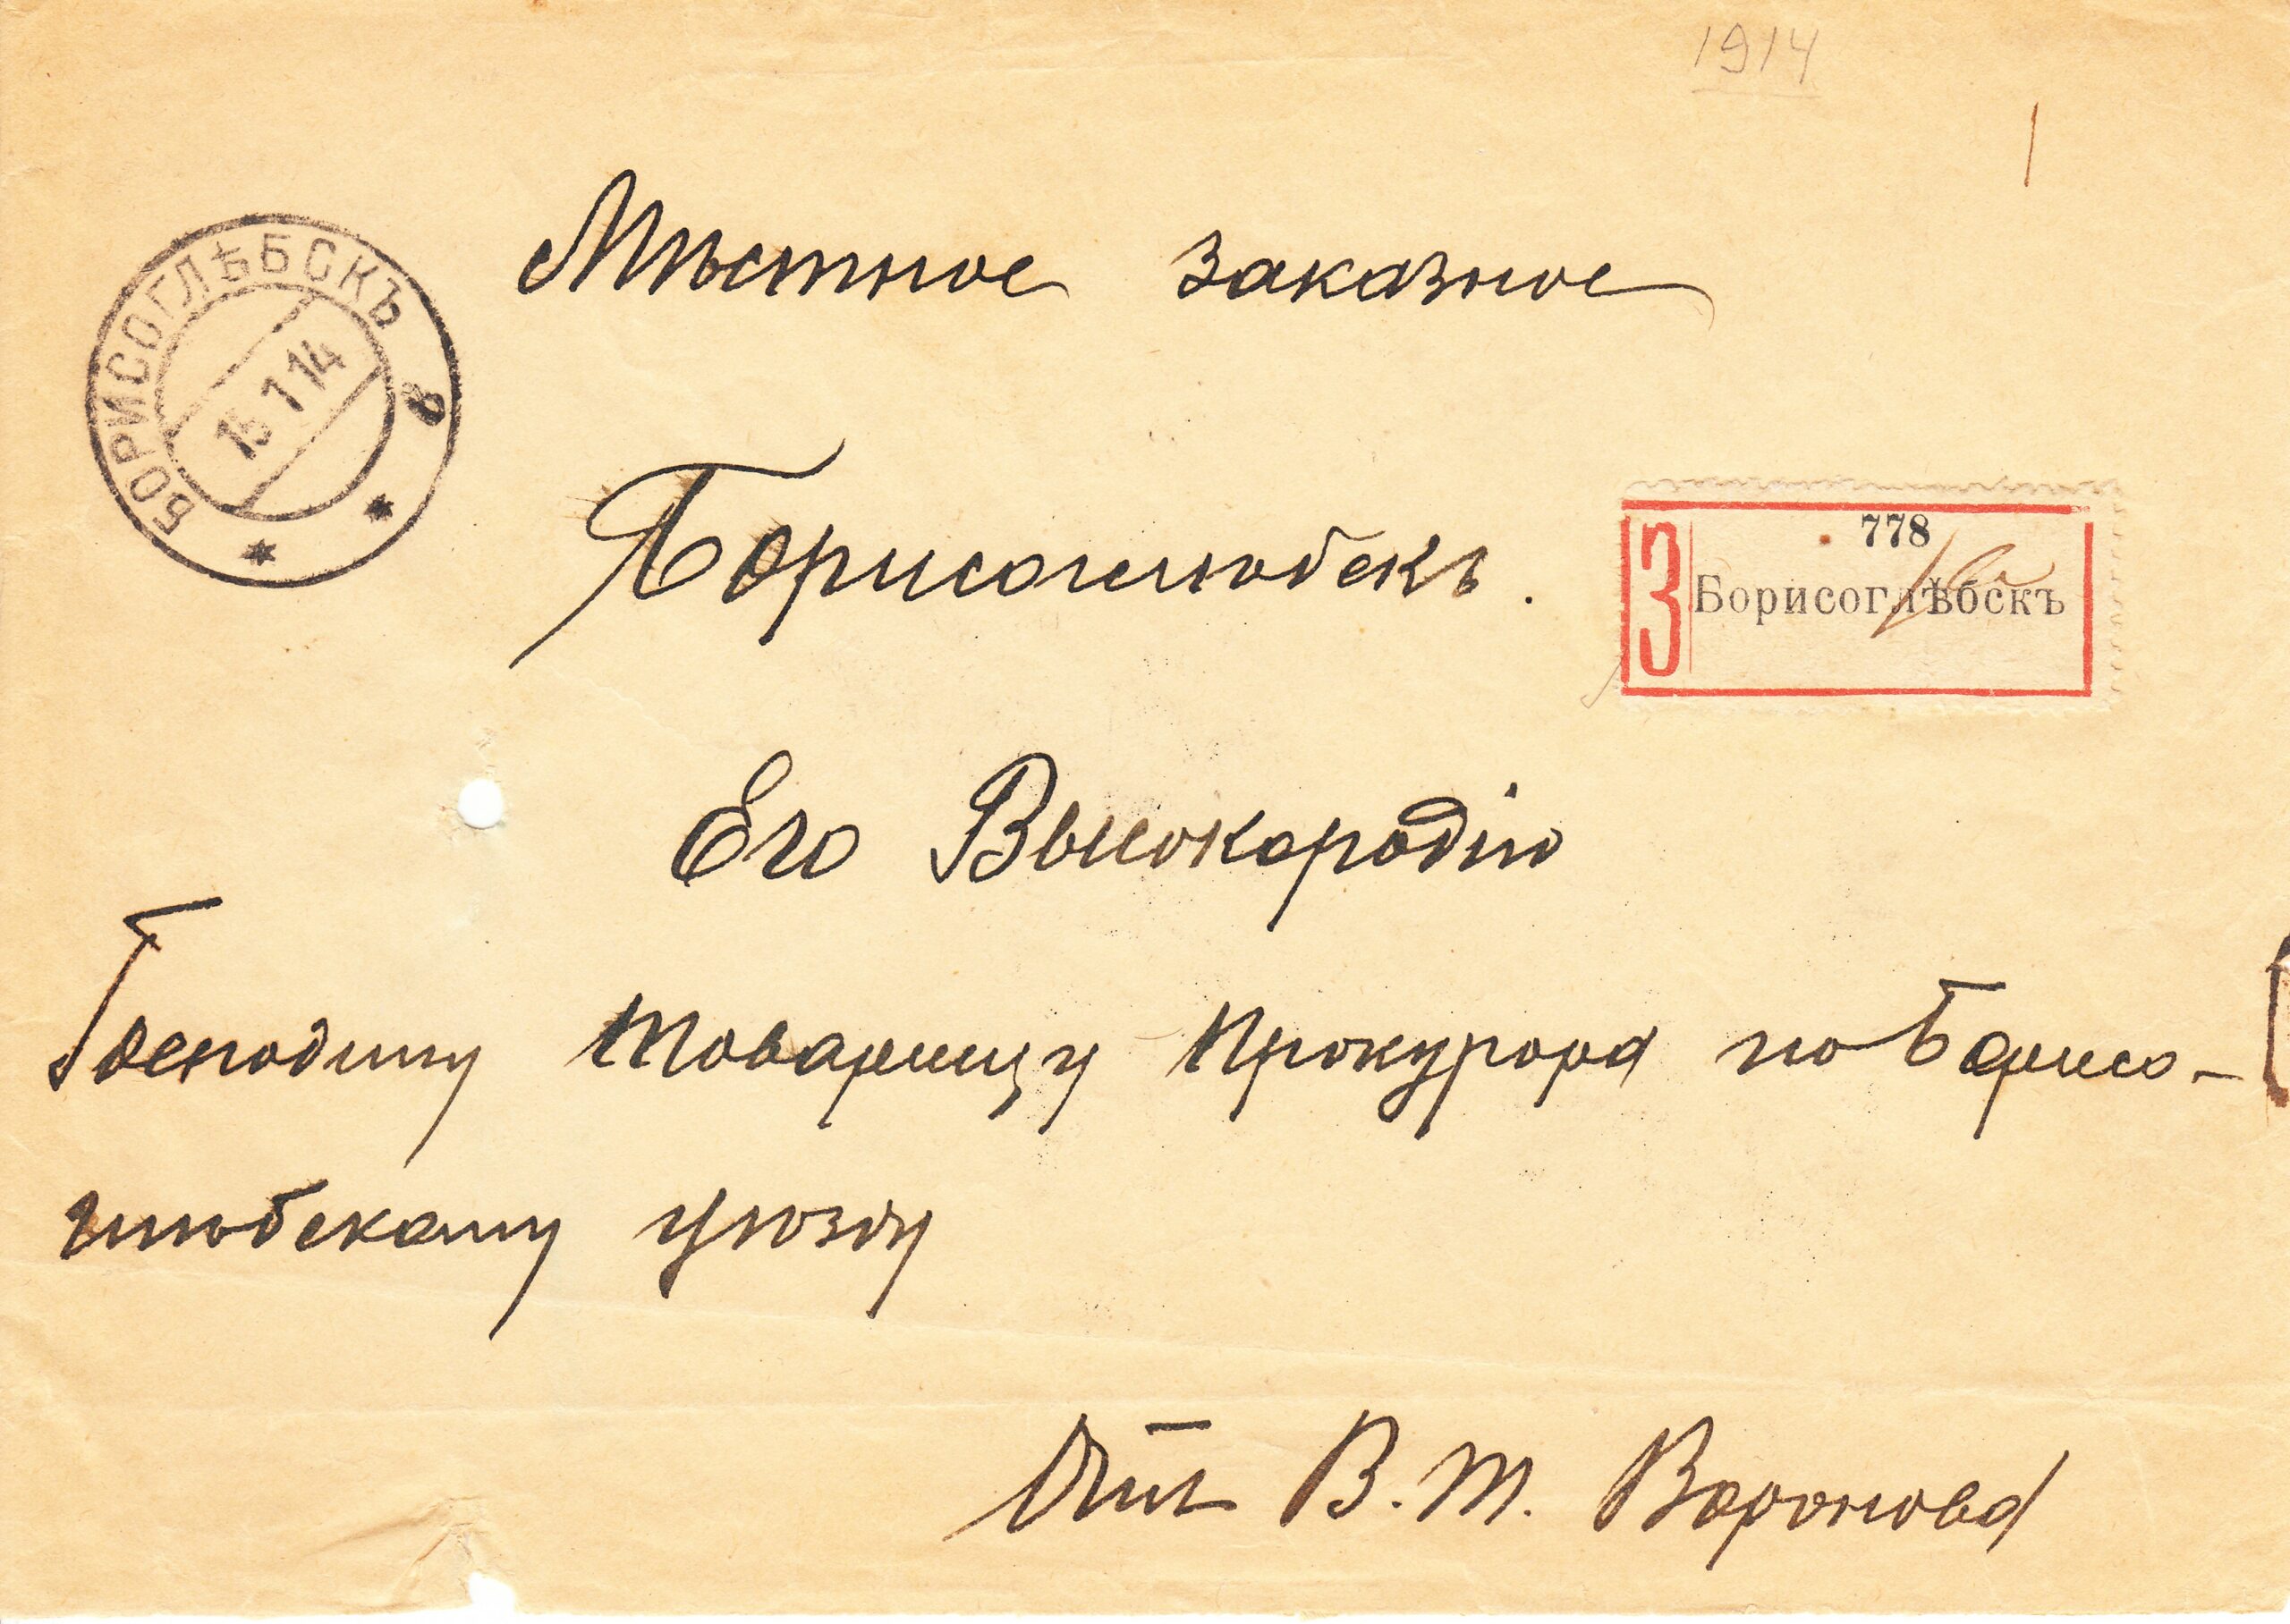 1914
Мѣстное заказное
БОРИСОГЛѢБСКЪ
15 1 14
в
Борисоглѣбскъ.
778
З
Борисоглѣбскъ
Его Высокородію
Господину Товарищу Прокурора по Борисо-
глѣбскому уѣзду
Отъ В. Т. Воронова